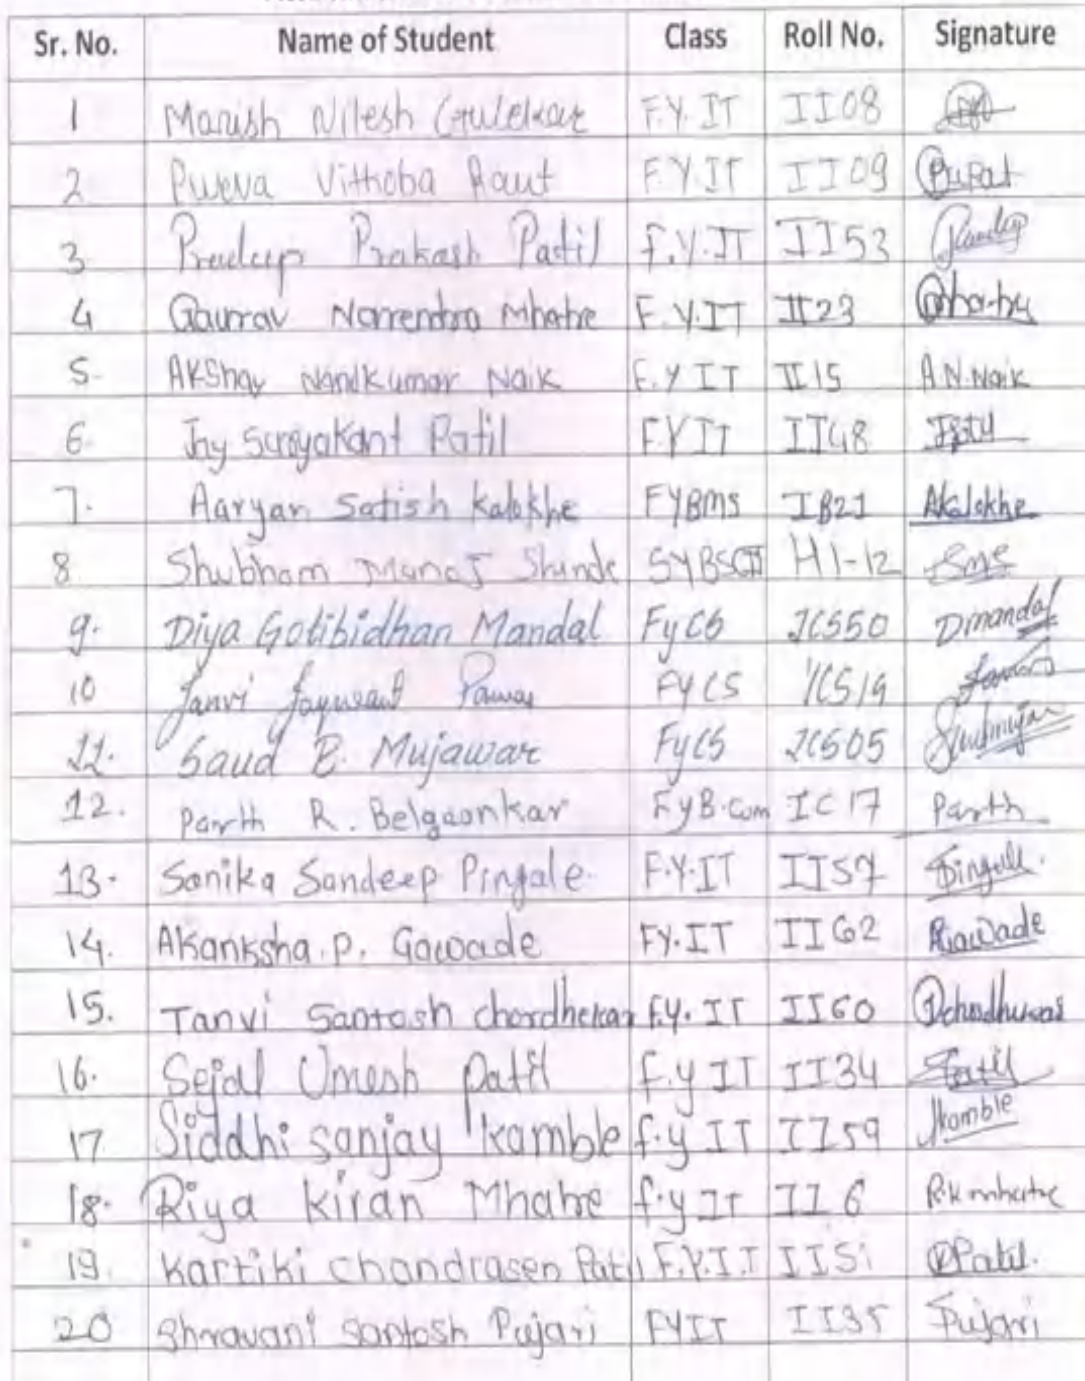 Sr. No. Name of Student Class Roll No. Signature
1 Manish Nilesh Gulekar F.Y. IT II08
2 Purva Vithoba Raut F.Y.IT II09
3 Pradeep Prakash Patil F.Y.IT II53
4 Gaurav Narrendra Mhatre F.Y.IT II23
5. AKShay Nandkumar Naik F.Y IT II15 A.N.Naik
6. Jay Suryakant Patil F.Y IT II48
7. Aaryan Satish Kalokhe FYBMS IB21 AKalokhe
8 Shubham Manoj Shinde SYBSCIT H1-12 Sms
9. Diya Gotibidhan Mandal FyCS ICS50 Dmandal
10 Janvi Jaywant Pawar FyCS ICS19
11. Saud B. Mujawar FyCS ICS05
12. Parth R. Belgaonkar F.yB.com IC17 Parth
13. Sanika Sandeep Pingale. F.Y.IT II57 Pingale.
14. Akanksha.P. Gawade FY.IT II62
15. Tanvi Santosh chordhekar F.Y. IT II60
16. Sejal Umesh Patil F.y IT II34 Patil
17 Siddhi sanjay kamble f.y IT II59 Kamble
18. Riya kiran Mhatre f.y IT II6 R.K mhatre
19. Kartiki chandrasen Patil F.Y.I.T II51 KPatil.
20 Shravani Santosh Pujari FYIT II35 Pujari